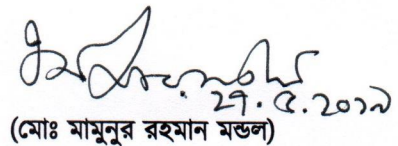 ২৭.৫.২০১৯
(মোঃ মামুনুর রহমান মন্ডল)